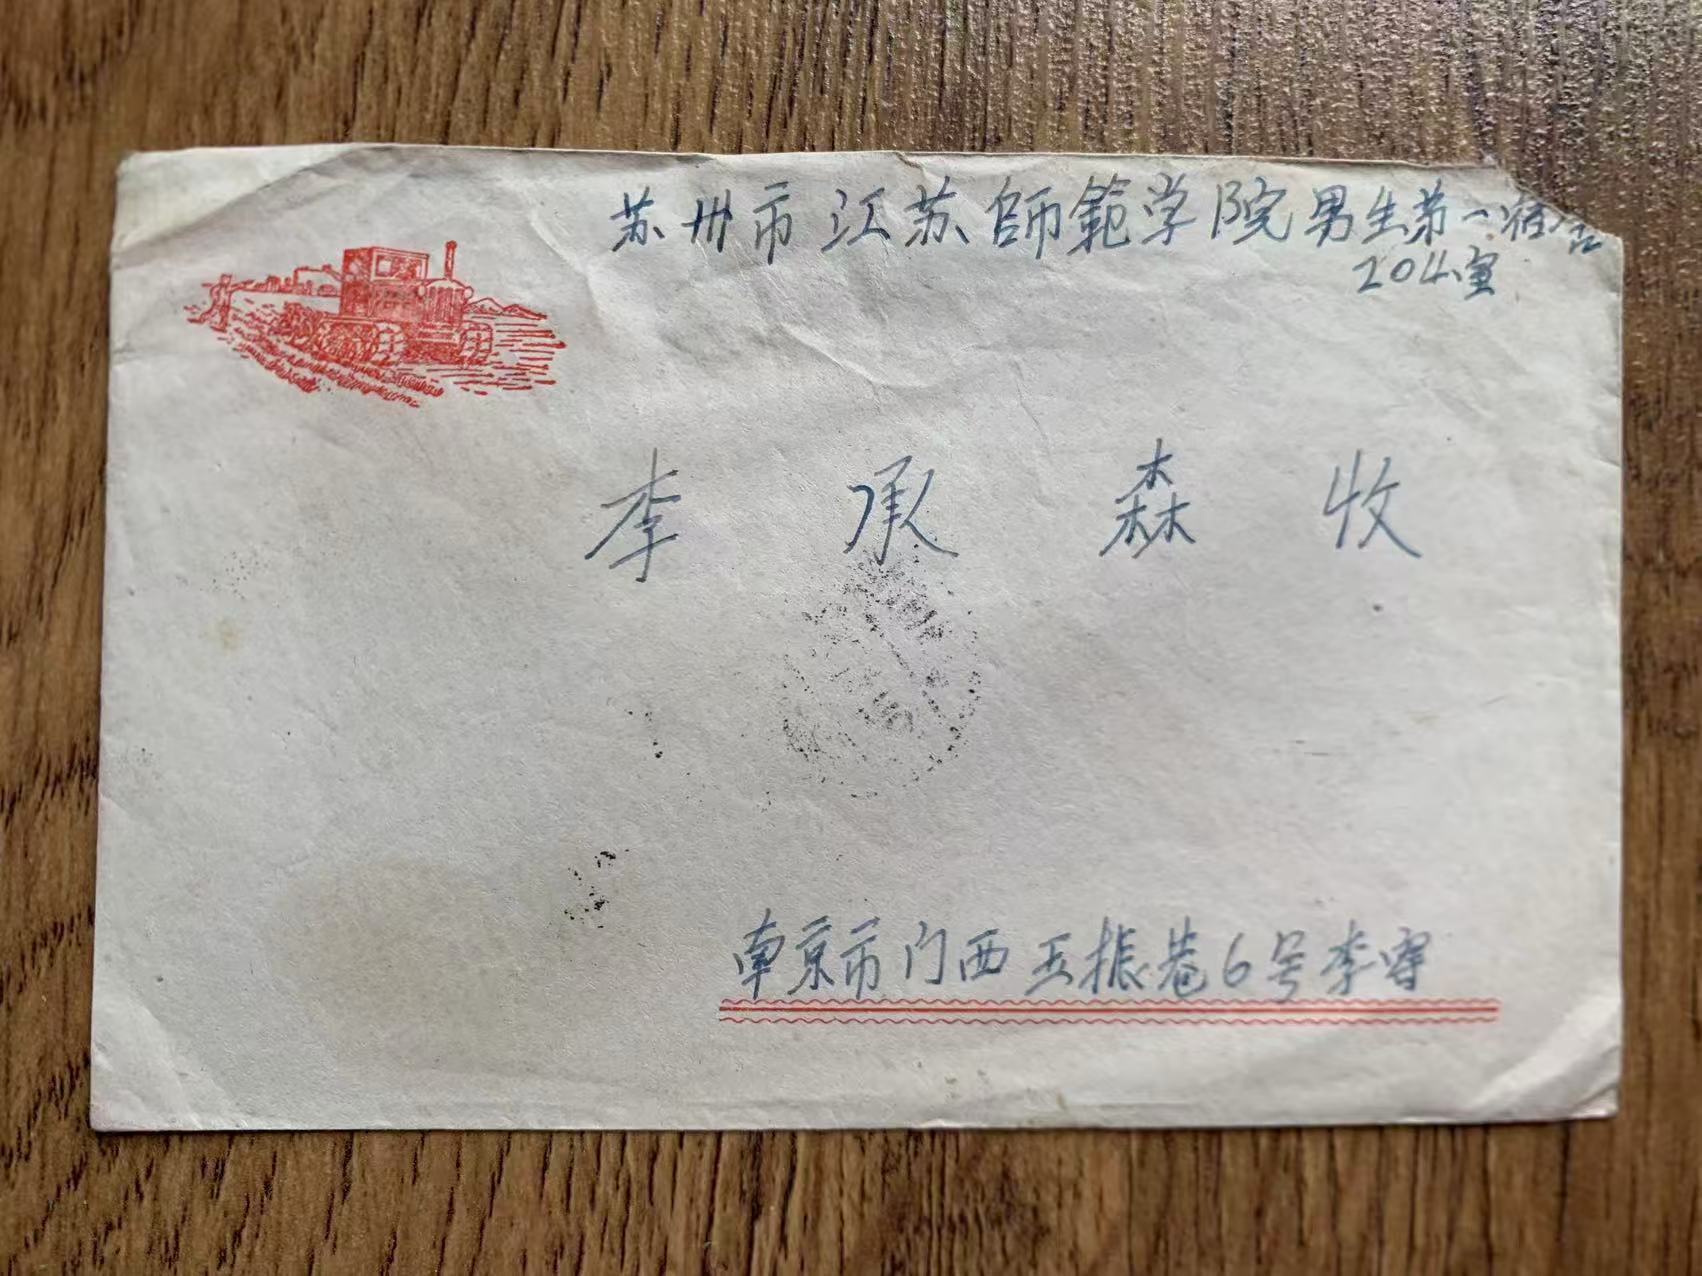 苏州市江苏師範学院男生第一宿舍
204室
李承森收
南京市门西五振巷6号李寄